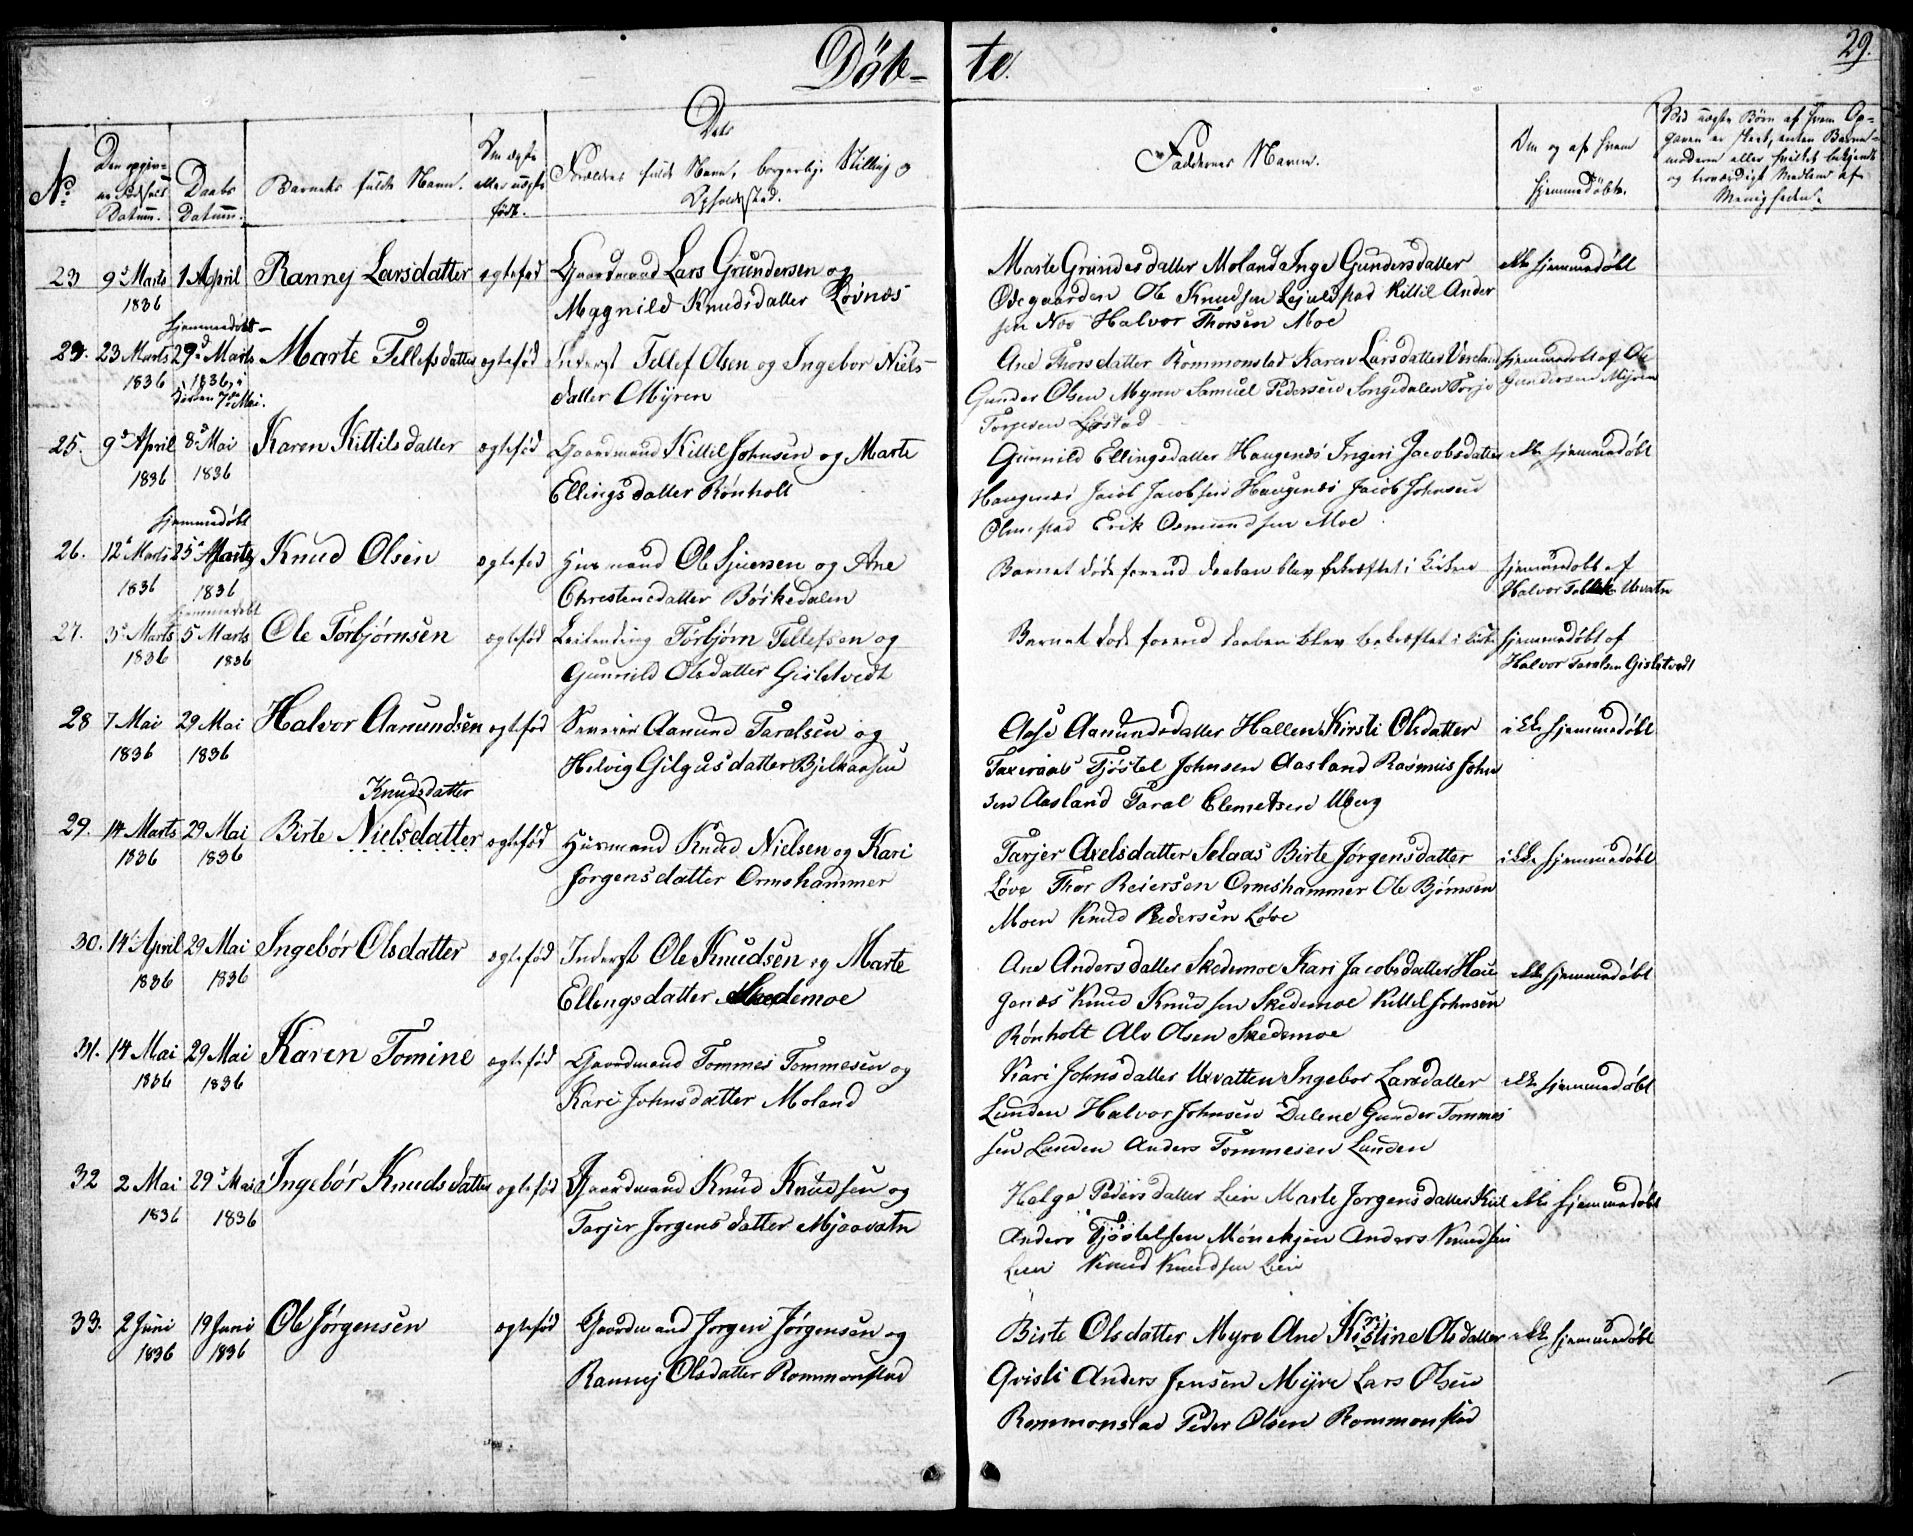 Døb-
te.
29.
No
Den opgivne Fødsels Datum.
Daabs Datum.
Barnets fulde Navn.
Om ægte eller uægte født.
Dets
Forældres fulde Navn, borgerlige Stilling og
Opholdssted.
Faddernes Navne.
Om og af hvem
hjemmedøbt.
Ved uægte Børn af hvem Op-
gaven er skeet, enten Barne-
moderen eller hvilket bekjendt
og troværdigt Medlem af
Menigheden.
23 9d Marts 1 April Ranney Larsdatter ægtefød Gaardmand Lars Grundersen og
1836
Magnild Knudsdatter Lovnæs
Marte Grundesdatter Moland Inge Gundersdatter ikke hjemmedøbt
Odegaarden Ole Knudsen Kittil Ander
sen Halvor Thorsen Moe
hjemmedøbt
24. 23 Marts 29d Marts Marte Tellefsdatter ægtefød Inderst Tellef Olsen og Ingebor Niels-
1836 1836
Kirken 7de Mai.
datter Myren
Ane Thorsdatter Rommonstad Karen Larsdatter hjemmedøbt af Ole
Gunder Olsen Myren Samuel Pedersen Songedalen Torje Gundersen Myren
Torjesen
25. 9d April 8d Mai Karen Kittilsdatter ægtefød Gaardmand Kittil Johnsen og Marte
1836 1836
Ellingsdatter Rønholt
Gunnild Ellingsdatter Haugenæs Ingeri Jacobsdatter ikke hjemmedøbt
Haugenæs Jacob Jacobsen Haugenæs Jacob Johnsen
Olmestad Erik Osmundsen Moe
hjemmedøbt
26. 12d Marts 25d Marts Knud Olsen ægtefød Husmand Ole Sjuersen og Ane
1836 1836
Chrestensdatter Böskedalen
Barnet døde forend daaben blev bekræftet i Kirken hjemmedøbt af
Halvor Usvatn
hjemmedøbt
27. 3d Marts 5 Marts Ole Torbjørnsen ægtefød Leilending Torbjørn Tellefsen og
1836 1836
Gunnild Olsdatter Gisletvedt
Barnet døde forend daaben blev bekræftet i Kirke hjemmedøbt af
Halvor Taralsen Gisletvedt
28 7 Mai 29 Mai Halvor Aanundsen ægtefød Aanund Taralsen og
1836 1836
Helvig Gilgusdatter Bjelkaasen
Aase Aanundsdatter Hallen Kirsti Olsdatter ikke hjemmedøbt
Taxeraas Tjöstel Johnsen Aasland Rasmus John
sen Aasland Taral Clemetsen Uberg
Knudsdatter
29. 14 Marts 29 Mai Birte Nielsdatter ægtefød Husmand Knud Nielsen og Kari
1836 1836
Jørgensdatter Ormshammer
Tarjer Axelsdatter Selaas Birte Jørgensdatter ikke hjemmedøbt
Løve Thor Reiersen Ormshammer Ole Bjørnsen
Moen Knud Pedersen Løve
30. 14 April 29 Mai Ingebør Olsdatter ægtefød Inderst Ole Knudsen og Marte
1836 1836
Ellingsdatter Skedemoe
Ane Andersdatter Skedemoe Kari Jacobsdatter Hau ikke hjemmedøbt
genæs Knud Knudsen Skedemoe Kittel Johnsen
Rønholt Alv Olsen Skedemoe
31. 14 Mai 29 Mai Karen Tomine ægtefød Gaardmand Tommes Tommesen og
1836 1836
Kari Johnsdatter Moland
Kari Johnsdatter Usvatten Ingebor Larsdatter ikke hjemmedøbt
Lunden Halvor Johnsen Dalene Gunder Tommes
sen Lunden Anders Tommesen Lunden
32 2 Mai 29d Mai Ingebør Knudsdatter ægtefød Gaardmand Knud Knudsen og
1836 1836
Tarjer Jørgensdatter Mjaavatn
Helge Pedersdatter Lien Marte Jorgensdatter Kiil ikke hjemmedøbt
Anders Tjöstelsen Anders Knudsen
Lien Knud Knudsen Lien
33. 2 Juni 19 Juni Ole Jørgensen ægtefød Gaardmand Jorgen Jørgensen og
1836 1836
Ranney Olsdatter Rommonstad
Birte Olsdatter Myre Ane Kistine Olsdatter ikke hjemmedøbt
Qvisli Anders Jensen Myre Lars Olsen
Rommonstad Peder Olsen Rommonstad